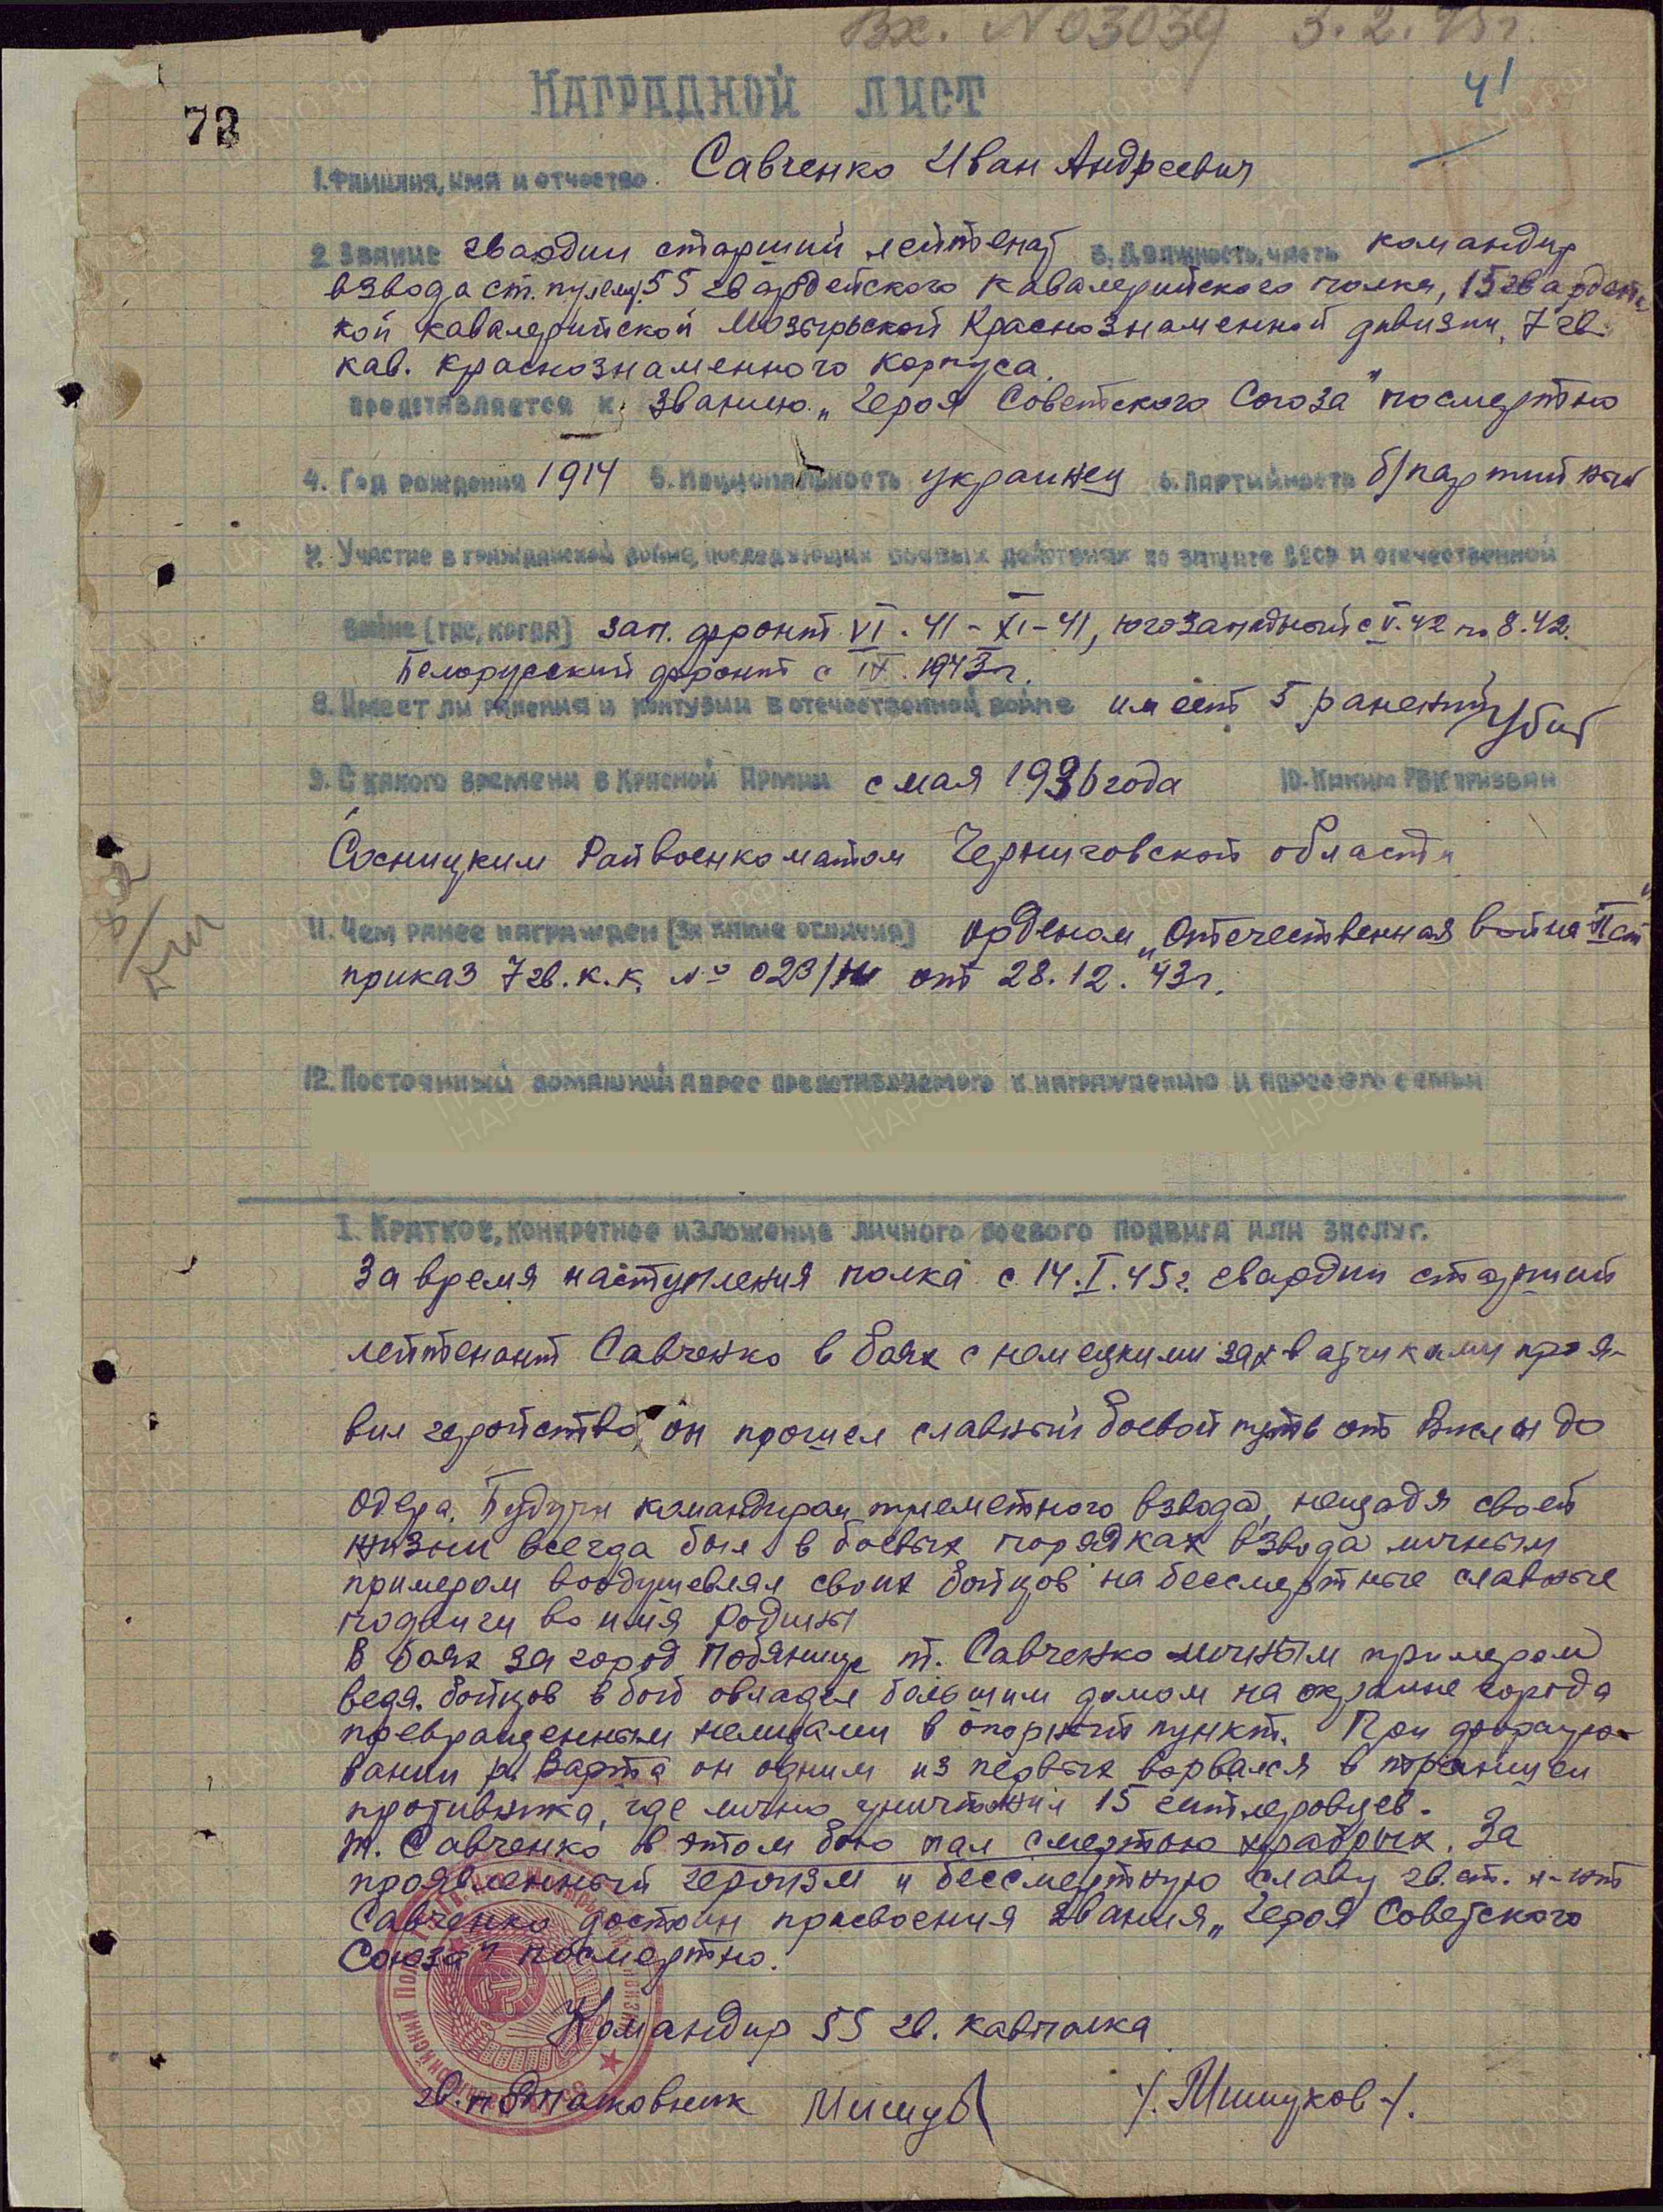 Вх. N 03039 3.2.45г.
41
НАГРАДНОЙ ЛИСТ
72
1. Фамилия, имя и отчество. Савченко Иван Андреевич
2 Звание гвардии старший лейтенат 3. Должность, часть командир
взвода ст. пулем. 55 гвардейского кавалерийского полка, 15 гвардейс
кой кавалерийской Мозырьской Краснознаменной дивизии, 7 гв.
кав. краснознаменного корпуса.
представляется к званию „Героя Советского Союза" посмертно
4. Год рождения 1914 5. Национальность украинец 6. Партийность б/партийный
7. Участие в гражданской войне, последующих боевых действиях по защите СССР и отечественной
войне (где, когда) зап. фронт VI.41-XI-41, югозападный с V.42 по 8.42.
Белорусский фронт с IX.1943г.
8. Имеет ли ранения и контузии в отечественной войне имеет 5 ранений убит
9. С какого времени в Красной Армии с мая 1936 года 10. Каким РВК призван
Сосницким Райвоенкоматом Черниговской области
11. Чем ранее награжден (за какие отличия) орденом „Отечественная война II ст"
приказ 7 гв. к.к. № 023/н от 28.12.43г.
12. Постоянный домашний адрес представляемого к награждению и адрес его семьи
I. Краткое, конкретное изложение личного боевого подвига или заслуг.
За время наступления полка с 14.I.45г. гвардии старший
лейтенант Савченко в боях с немецкими захватчиками проя-
вил геройство, он прошел славный боевой путь от Вислы до
Одера. Будучи командиром пулеметного взвода, нещадя своей
жизни всегда был в боевых порядках взвода личным
примером воодушевлял своих бойцов на бессмертные славные
подвиги во имя Родины
В боях за город Побянице т. Савченко личным примером
ведя бойцов в бой овладел большим домом на окраине города
превращенным немцами в опорный пункт. При форсиро-
вании р. Варта он одним из первых ворвался в траншеи
противника, где лично уничтожил 15 гитлеровцев.
т. Савченко в этом бою пал смертью храбрых. За
проявленный героизм и бессмертную славу гв. ст. л-нт
Савченко достоин присвоения звания „Героя Советского
Союза" посмертно.
Командир 55 гв. кавполка
гв. подполковник /. Мишуков /.